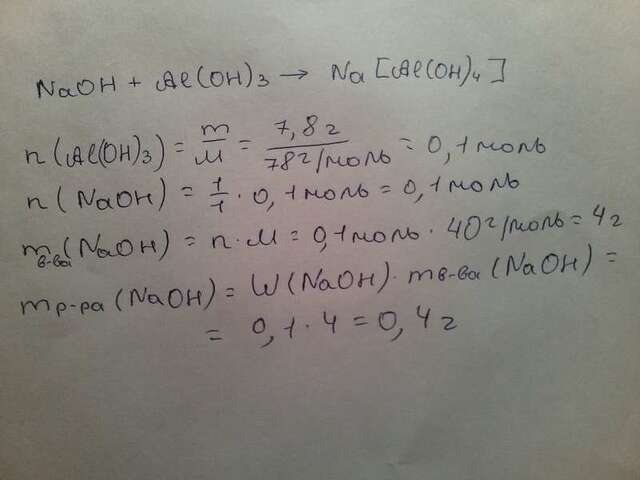 NaOH + Al(OH)3 → Na[Al(OH)4]
n(Al(OH)3) = m/M = 7,8г/78г/моль = 0,1 моль
n(NaOH) = 1/1 · 0,1 моль = 0,1 моль
mв-ва(NaOH) = n·M = 0,1 моль · 40 г/моль = 4г
mр-ра(NaOH) = W(NaOH) · mв-ва(NaOH) =
= 0,1 · 4 = 0,4г